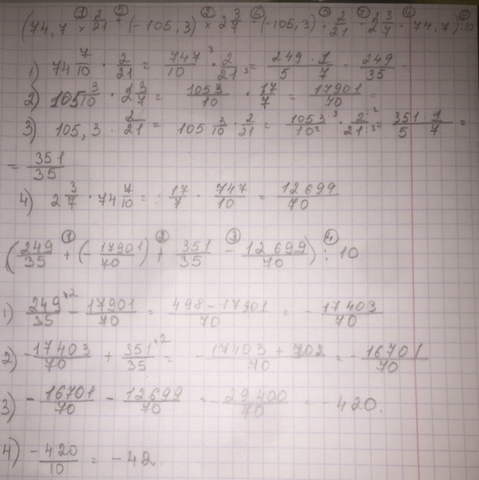 (74,7 × 2/21 + (-105,3) × 2 3/7 - (-105,3) · 2/21 - 2 3/7 · 74,7) : 10
1) 74 7/10 · 2/21 = 747/10 · 2/21 = 249/5 · 1/7 = 249/35
2) 105 3/10 · 2 3/7 = 1053/10 · 17/7 = 17901/70
3) 105,3 · 2/21 = 105 3/10 · 2/21 = 1053/10 · 2/21 = 351/5 · 1/7 =
= 351/35
4) 2 3/7 · 74 7/10 = 17/7 · 747/10 = 12699/70
(249/35 + (-17901/70) + 351/35 - 12699/70) : 10
1) 249/35 - 17901/70 = 498-17901/70 = -17403/70
2) -17403/70 + 351/35 = -17403+702/70 = -16701/70
3) -16701/70 - 12699/70 = -29400/70 = -420.
4) -420/10 = -42.